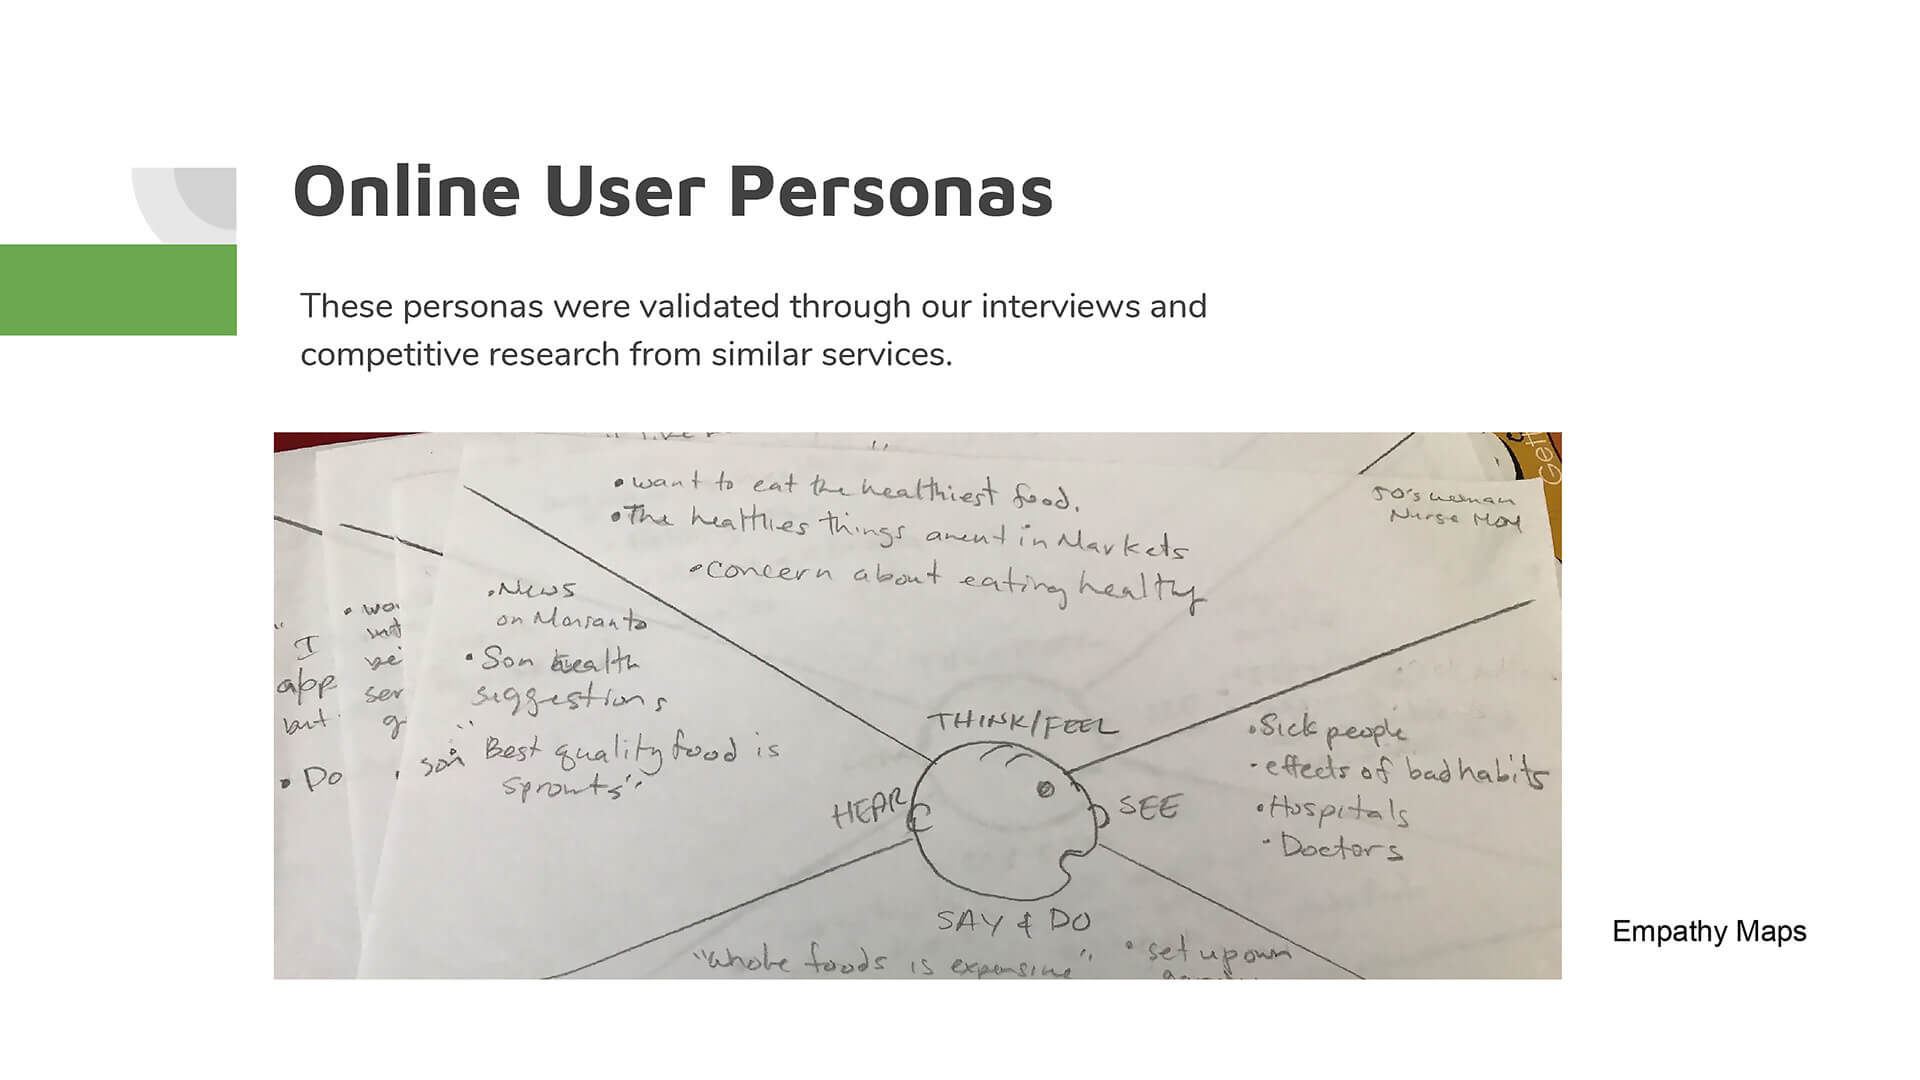 Online User Personas
These personas were validated through our interviews and
competitive research from similar services.
•want to eat the healthiest food.
•The healthies things arent in Markets
•concern about eating healthy
50's woman
Nurse Mom
•News
on Monsanto
•Son health
suggestions
son "Best quality food is
sprouts"
THINK/FEEL
HEAR
SEE
•Sick people
•effects of bad habits
•Hospitals
•Doctors
SAY & DO
"whole foods is expensive"
•set up own
I
app
but
•Do
Empathy Maps